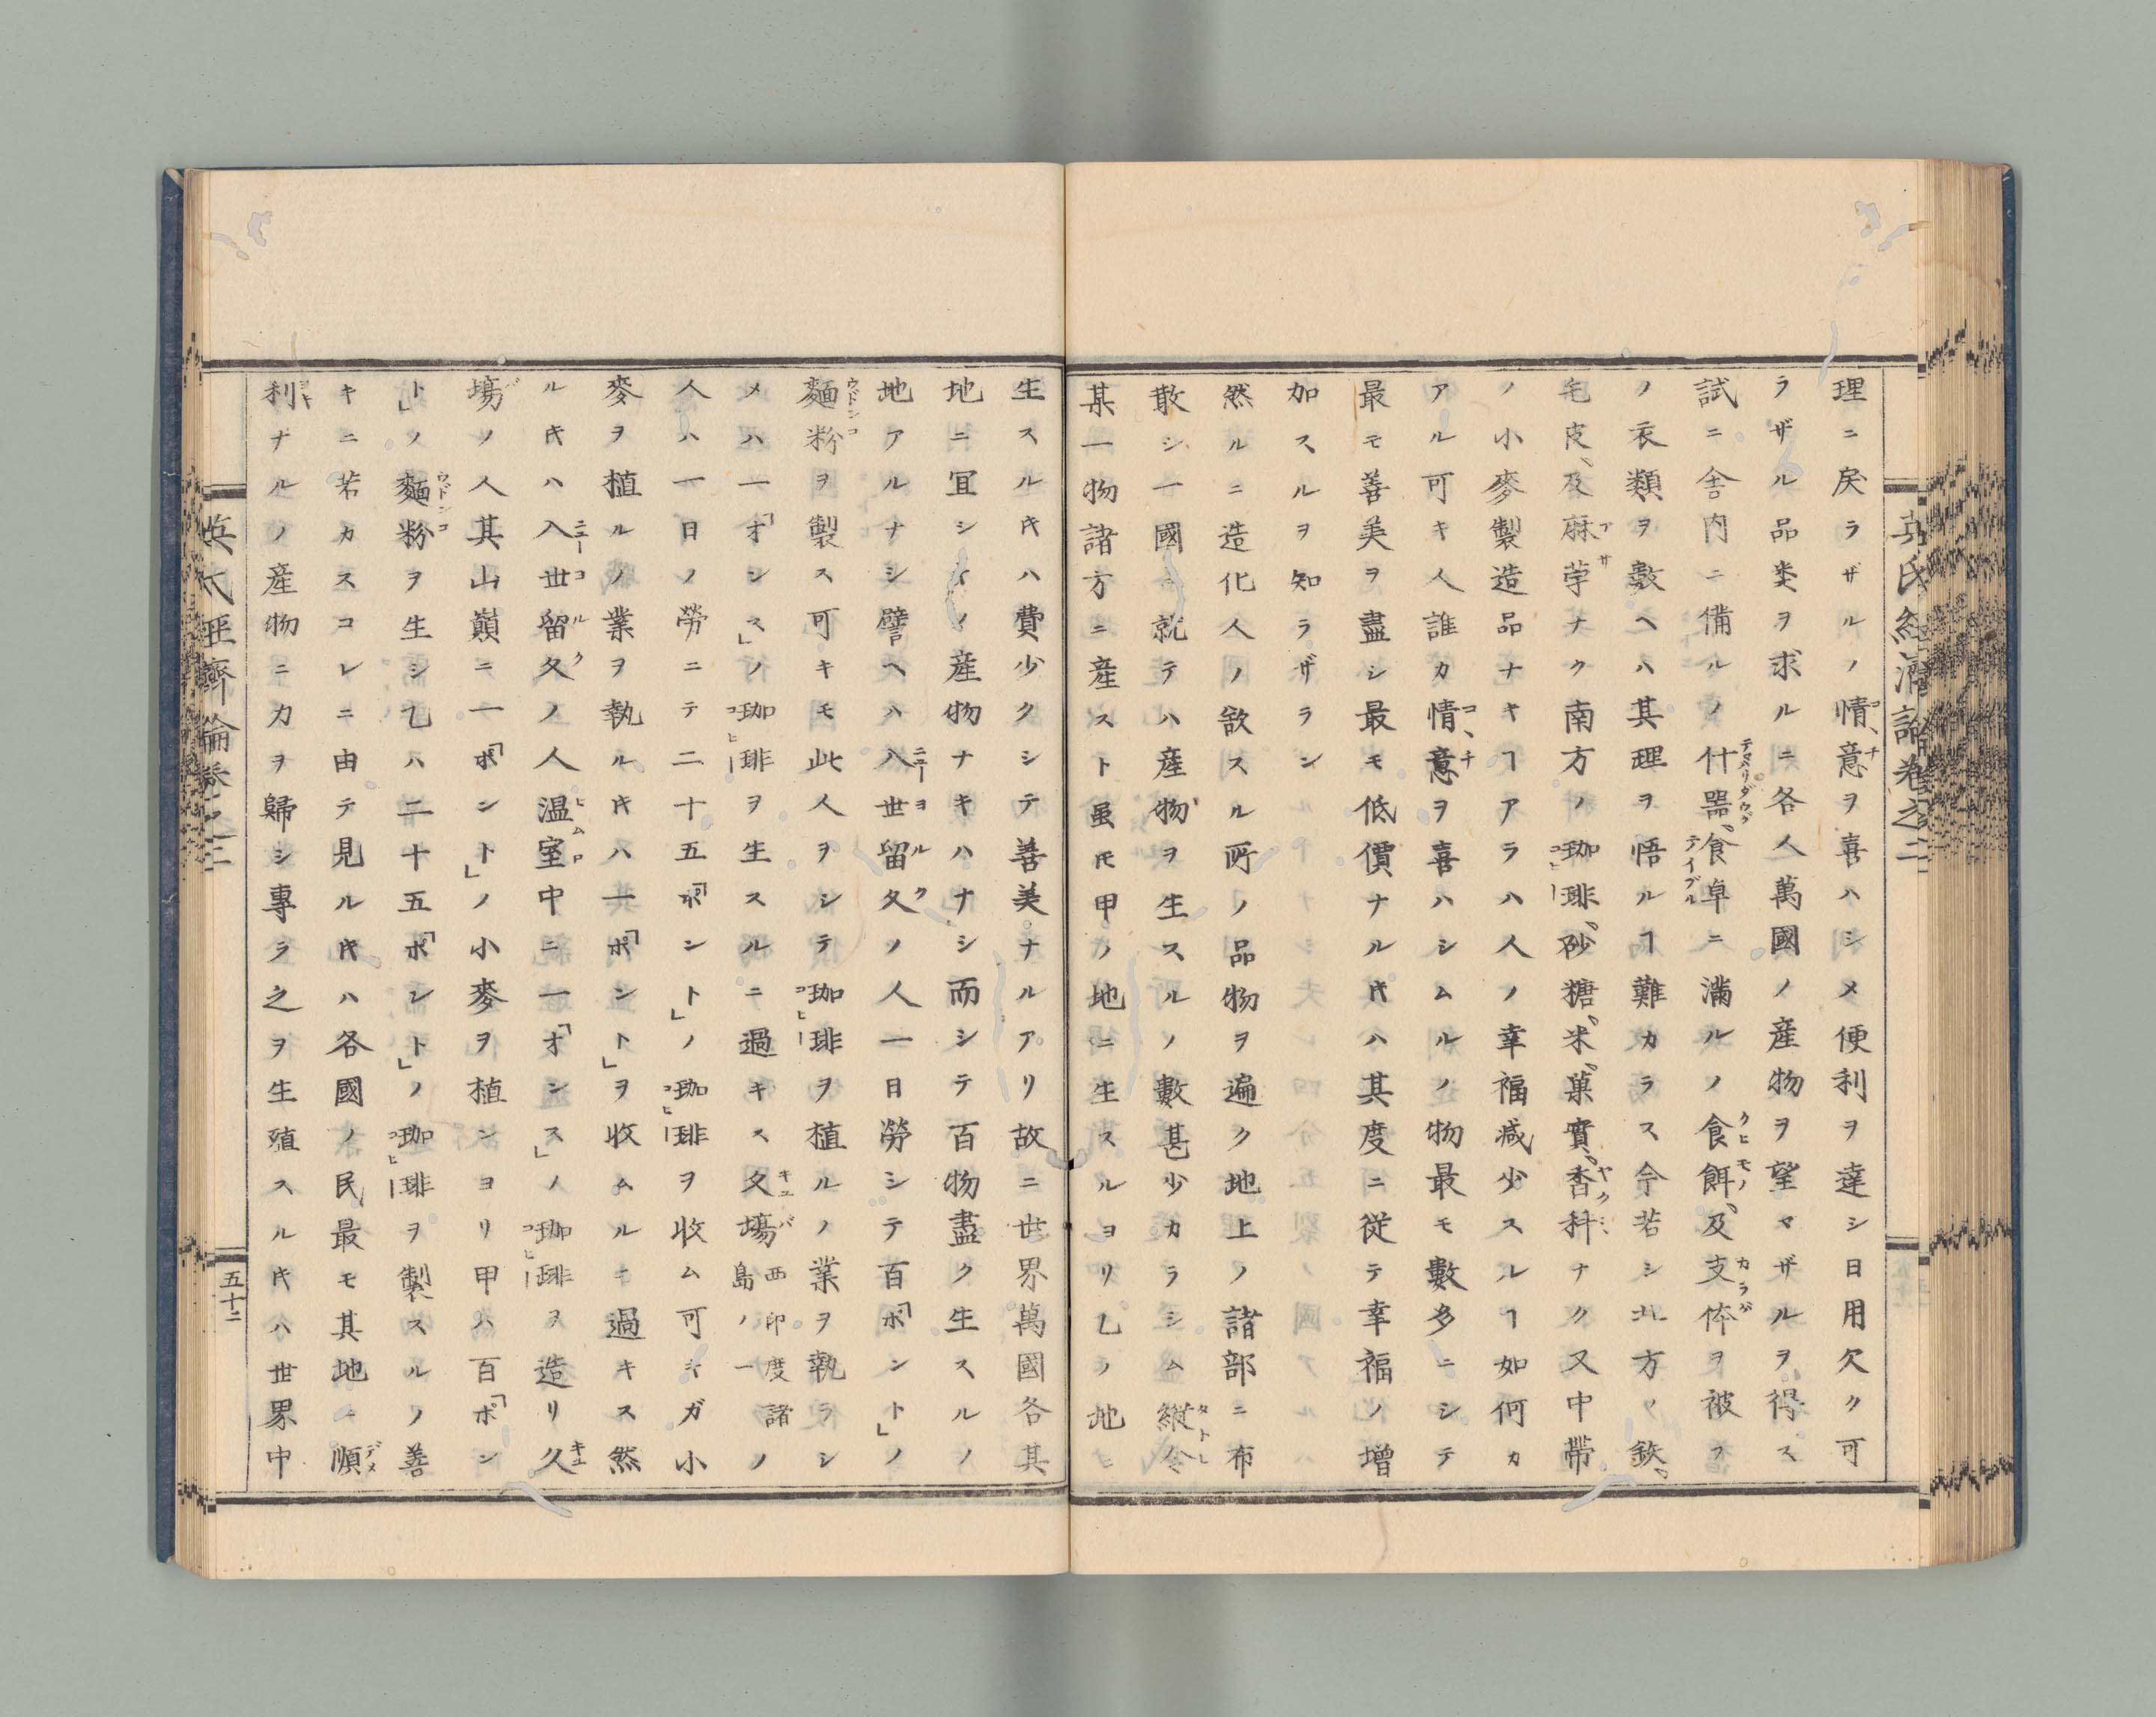 英氏經濟論卷之二
理ニ戾ラザルノ情意ヲ喜ハシメ便利ヲ達シ日用欠ク可
ラザル品类ヲ求ルニ各人萬國ノ産物ヲ望マザルヲ得ス
試ニ舎内ニ備ルノ什噐、食卓ニ滿ルノ食餌、及支体ヲ被フ
ノ衣類ヲ數ヘハ其理ヲ悟ルヿ難カラス今若シ北方ノ鉄、
毛皮、及麻苧ナク南方ノ珈琲、砂糖、米、菓實、香料ナク又中帶
ノ小麥製造品ナキヿアラハ人ノ幸福减少スルヿ如何カ
アル可キ人誰カ情意ヲ喜ハシムルノ物最モ數多ニシテ
最モ善美ヲ盡シ最モ低價ナル𪜈ハ其度ニ従テ幸福ノ增
加スルヲ知ラザラン
然ルニ造化人ノ欲スル所ノ品物ヲ遍ク地上ノ諸部ニ布
散シ一國ニ就テハ産物ヲ生スルノ數甚少カラシム縱令
某一物諸方ニ産スト虽𪜈甲ノ地ニ生スルヨリ乙ノ地ニ
生スル𪜈ハ費少クシテ善美ナルアリ故ニ世界萬國各其
地ニ冝シキノ産物ナキハナシ而シテ百物盡ク生スルノ
地アルナシ譬ヘハ八世留久ノ人一日勞シテ百「ポント」ノ
麵粉ヲ製ス可キモ此人ヲシテ珈琲ヲ植ルノ業ヲ執ラシ
メハ一「オンス」ノ珈琲ヲ生スルニ過キス久塲西印度諸島ノ一ノ
人ハ一日ノ勞ニテ二十五「ポント」ノ珈琲ヲ收ム可シガ小
麥ヲ植ルノ業ヲ執ル𪜈ハ一「ポント」ヲ收ムルニ過キス然
ル𪜈ハ入世留久ノ人温室中ニ一「オンス」ノ珈琲ヲ造リ久
塲ノ人其山巓ニ一「ポント」ノ小麥ヲ植ンヨリ甲ハ百「ポン
ト」ノ麵粉ヲ生シ乙ハ二十五「ポント」ノ珈琲ヲ製スルノ善
キニ若カスコレニ由テ見ル𪜈ハ各國ノ民最モ其地ニ順
利ナルノ産物ニカヲ歸シ專ラ之ヲ生殖スル𪜈ハ世界中
英氏經濟論卷之二
五十二